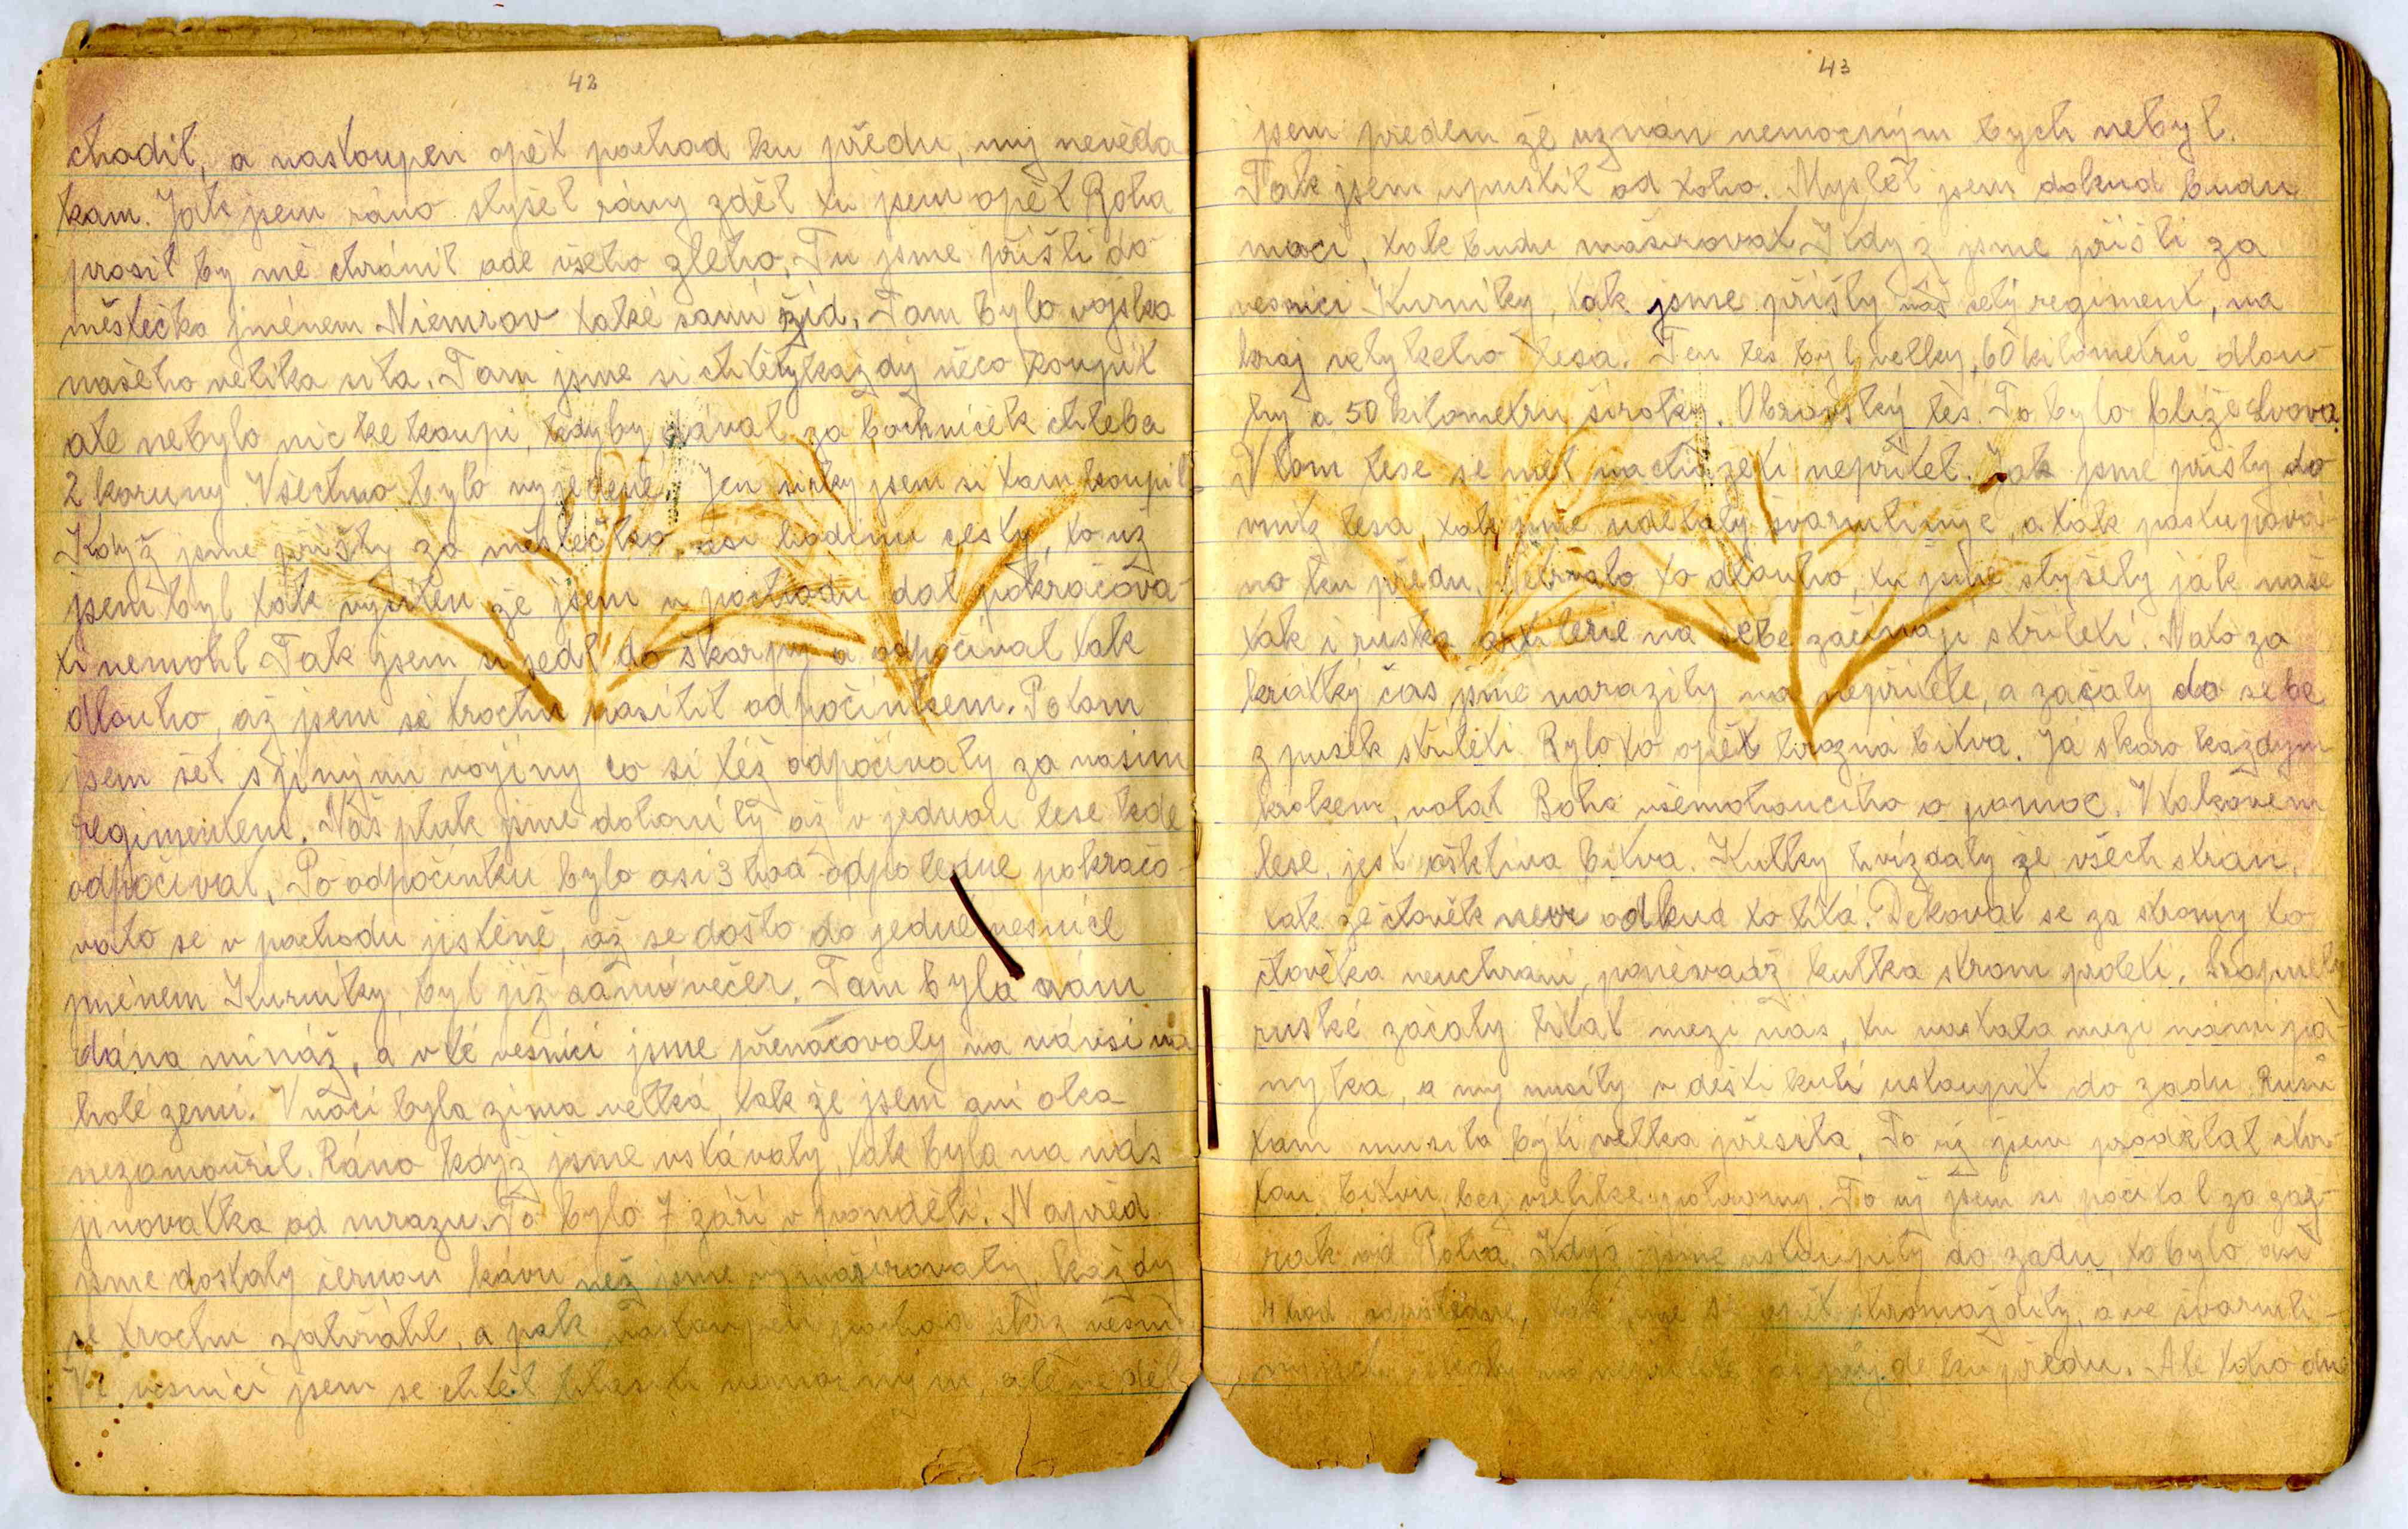 42
chodil, a nastoupen opět pochod ku předu, my nevěda
kam. Jak jsem ráno slyšel rány zdět tu jsem opět Boha
prosil by mě chránil ode všeho zlého. Tu jsme přišli do
městečka jménem Niemrov také samí žid. Tam bylo vojska
našeho velika síla. Tam jsme si chtěly každý něco koupit
ale nebylo nic ke koupi, kdyby dával za bochníček chleba
2 koruny. Všechno bylo vyjedené. Jen sirky jsem si tam koupil.
Když jsme přišly za městečko, asi hodinu cesty, to už
jsem byl tak vysílen že jsem v pochodu dál pokračova-
ti nemohl. Tak jsem si sedl do škarpy a odpočíval tak
dlouho, až jsem se trochu nasílil odpočinkem. Potom
jsem šel s jinými vojíny co si též odpočívaly za našim
regimentem. Náš pluk jsme dohonily až v jednom lese kde
odpočíval. Po odpočinku bylo asi 3 hod odpoledne pokračo-
valo se v pochodu jistěně, až se došlo do jedné vesnice
jménem Kurniky, byl již sámí večer. Tam byla nám
dána mináž, a v té vesnici jsme přenocovaly na návsi na
holé zemi. V noci byla zima velká, tak že jsem ani oka
nezamouřil. Ráno když jsme vstávaly, tak byla na nás
jinovatka od mrazu. To bylo 7 září v pondělí. Napřed
jsme dostaly černou kávu než jsme vymašírovaly, každý
se trochu zahřáhl, a pak nastoupen pochod skrz vesni.
Ve vesnici jsem se chtěl hlásiti nemocným, ale věděl
43
jsem předem že uznán nemocným bych nebyl.
Tak jsem upustil od toho. Myslel jsem dokud budu
moci, tak budu mašírovat. Když jsme přišli za
vesnici Kurniky, tak jsme přišly náš celý regiment, na
kraj velykeho lesa. Ten les byl velky, 60 kilometrů dlou-
hy a 50 kilometru široky. Obrovský les. To bylo blíže Lvova.
V tom lese se měl nacházeti nepřitel. Jak jsme přišly do
vnitř lesa, tak jsme udělaly švarmlinye, a tak postupová-
no ku předu. Netrvalo to dlouho, tu jsme slyšely jak naše
tak i ruska artilerie na sebe začínaji stříleti. Nato za
krátký čas jsme narazily na nepřitele, a začaly do sebe
z pušek stříleti. Bylo to opět hrozná bitva. Já skoro každym
krokem, volal Boha všemohoucího o pomoc. V takovém
lese, jest ošklivá bitva. Kulky hvízdaly ze všech strán,
tak že člověk neví odkud to lítá. Dekovat se za stromy to
človéka neuchrání, poněvadž kulka strom proletí. Šrapnely
ruské začaly lítat mezi nás, tu nastala mezi námi pá-
nyka, a my musily v dešti kulí ustoupit do zadu. Rusů
tam musila býti velká přesila. To už jsem prodělal čtvr-
tou bitvu, bez veliké pohromy. To už jsem si počítal za záz-
rak od Boha. Když jsme ustoupily do zadu, to bylo asi
4 hod odpoledne, tak jsme se opět shromáždily, a ve švarmli-
nyi čekaly na nepřitele až půjde ku předu. Ale toho dne